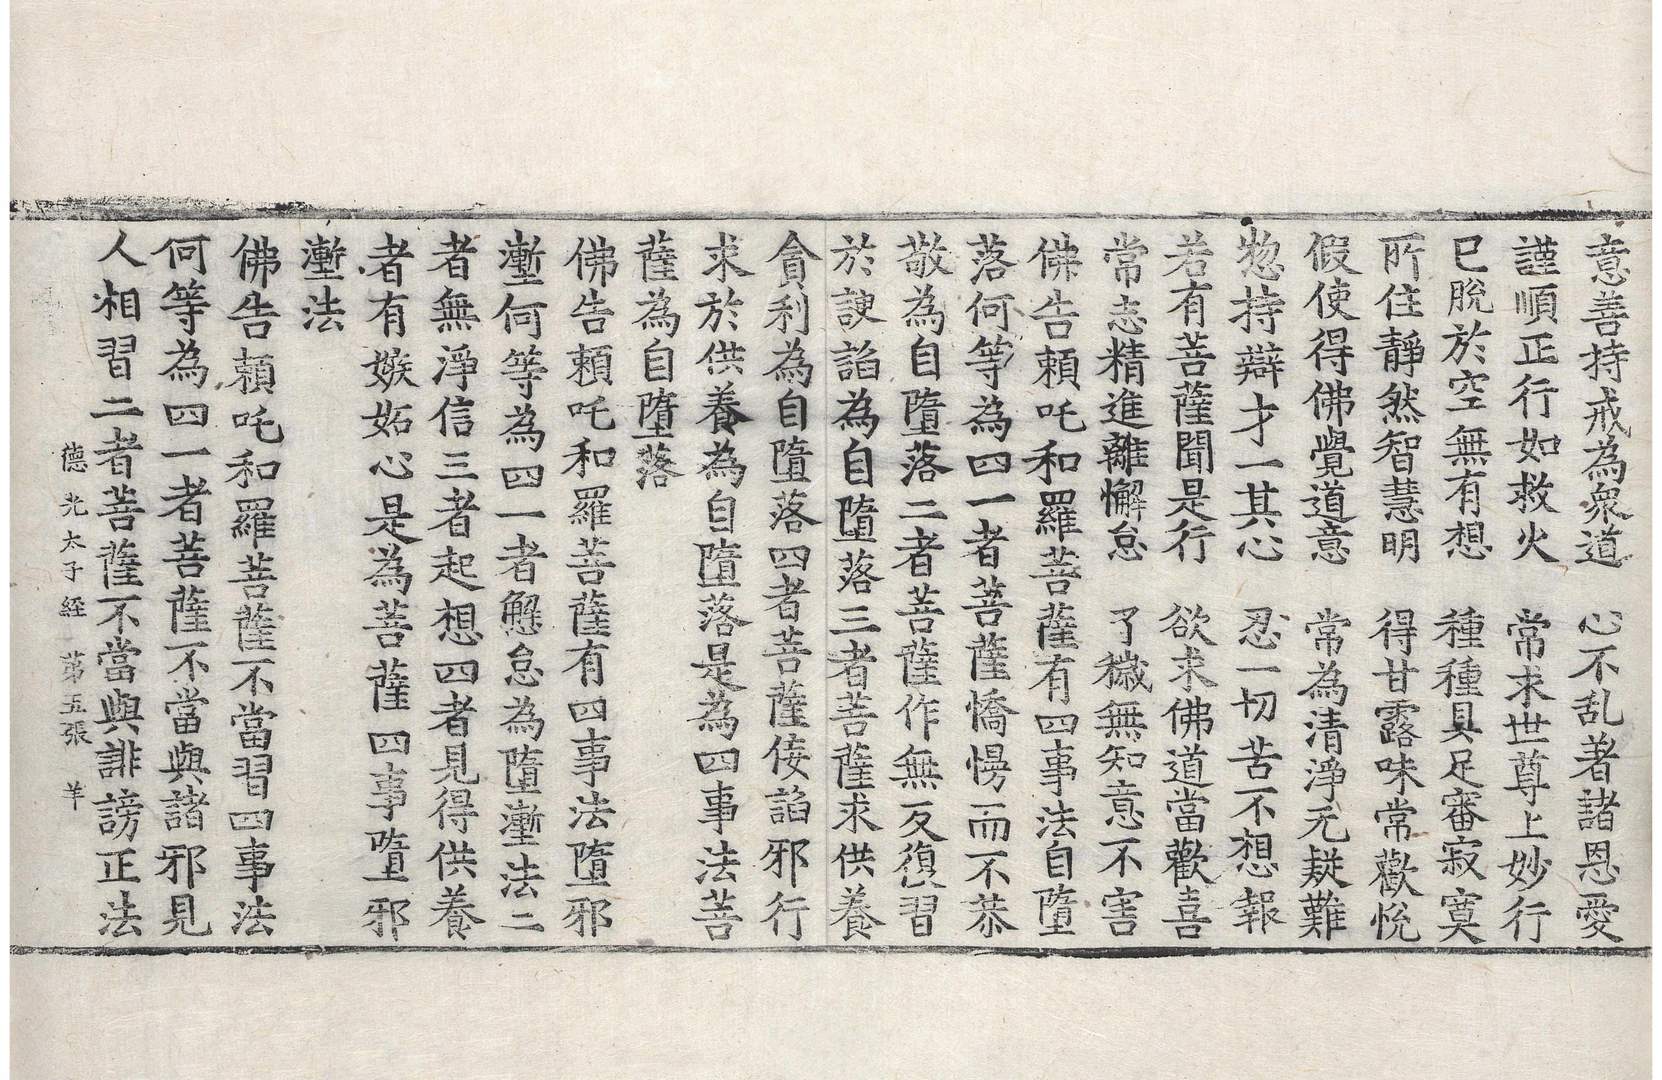 意善持戒為衆道　心不乱著諸恩愛
謹順正行如救火　常求世尊上妙行
已脫於空無有想　種種具足審寂寞
所住靜然智慧明　得甘露味常歡悅
假使得佛覺道意　常為清淨无疑難
惣持辯才一其心　忍一切苦不想報
若有菩薩聞是行　欲求佛道當歡喜
常志精進離懈怠　了穢無知意不害
佛告頼吒和羅菩薩有四事法自墮
落何等為四一者菩薩憍慢而不恭
敬為自墮落二者菩薩作無反復習
於諛諂為自墮落三者菩薩求供養
貪利為自墮落四者菩薩倿諂邪行
求於供養為自墮落是為四事法菩
薩為自墮落
佛告頼吒和羅菩薩有四事法墮邪
壍何等為四一者懈怠為墮壍法二
者無淨信三者起想四者見得供養
者有嫉妬心是為菩薩四事墮邪
壍法
佛告頼吒和羅菩薩不當習四事法
何等為四一者菩薩不當與諸邪見
人相習二者菩薩不當與誹謗正法
德光太子經　第五張　羊